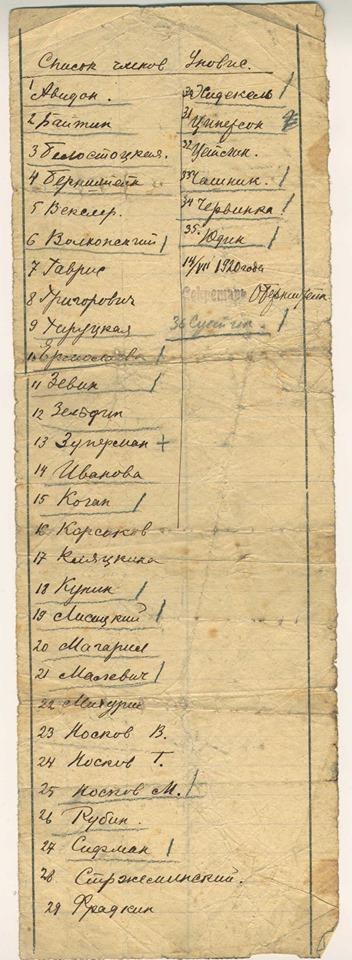 Список членов Уновис.
1 Авидон.
2 Байтин
3 Белостоцкая.
4 Бернштейн
5 Векслер.
6 Волхонский /
7 Гаврис
8 Григорович
9 Хируцкая
10 Ермолаева /
11 Зевин /
12 Зельдин
13 Зуперман +
14 Иванова
15 Коган /
16 Корсаков
17 Кляцкина
18 Кунин /
19 Лисицкий /
20 Магарил
21 Малевич /
22
23 Носков В.
24 Носков Г.
25 Носков М. /
26 Рубин.
27 Сифман /
28 Стржеминский.
29 Фрадкин
30 Хидекель /
31 Циперсон
32 Цейтлин.
33 Чашник. /
34 Червинка /
35. Юдин /
14/VII 1920 года
Секретарь
36 Суетин. /